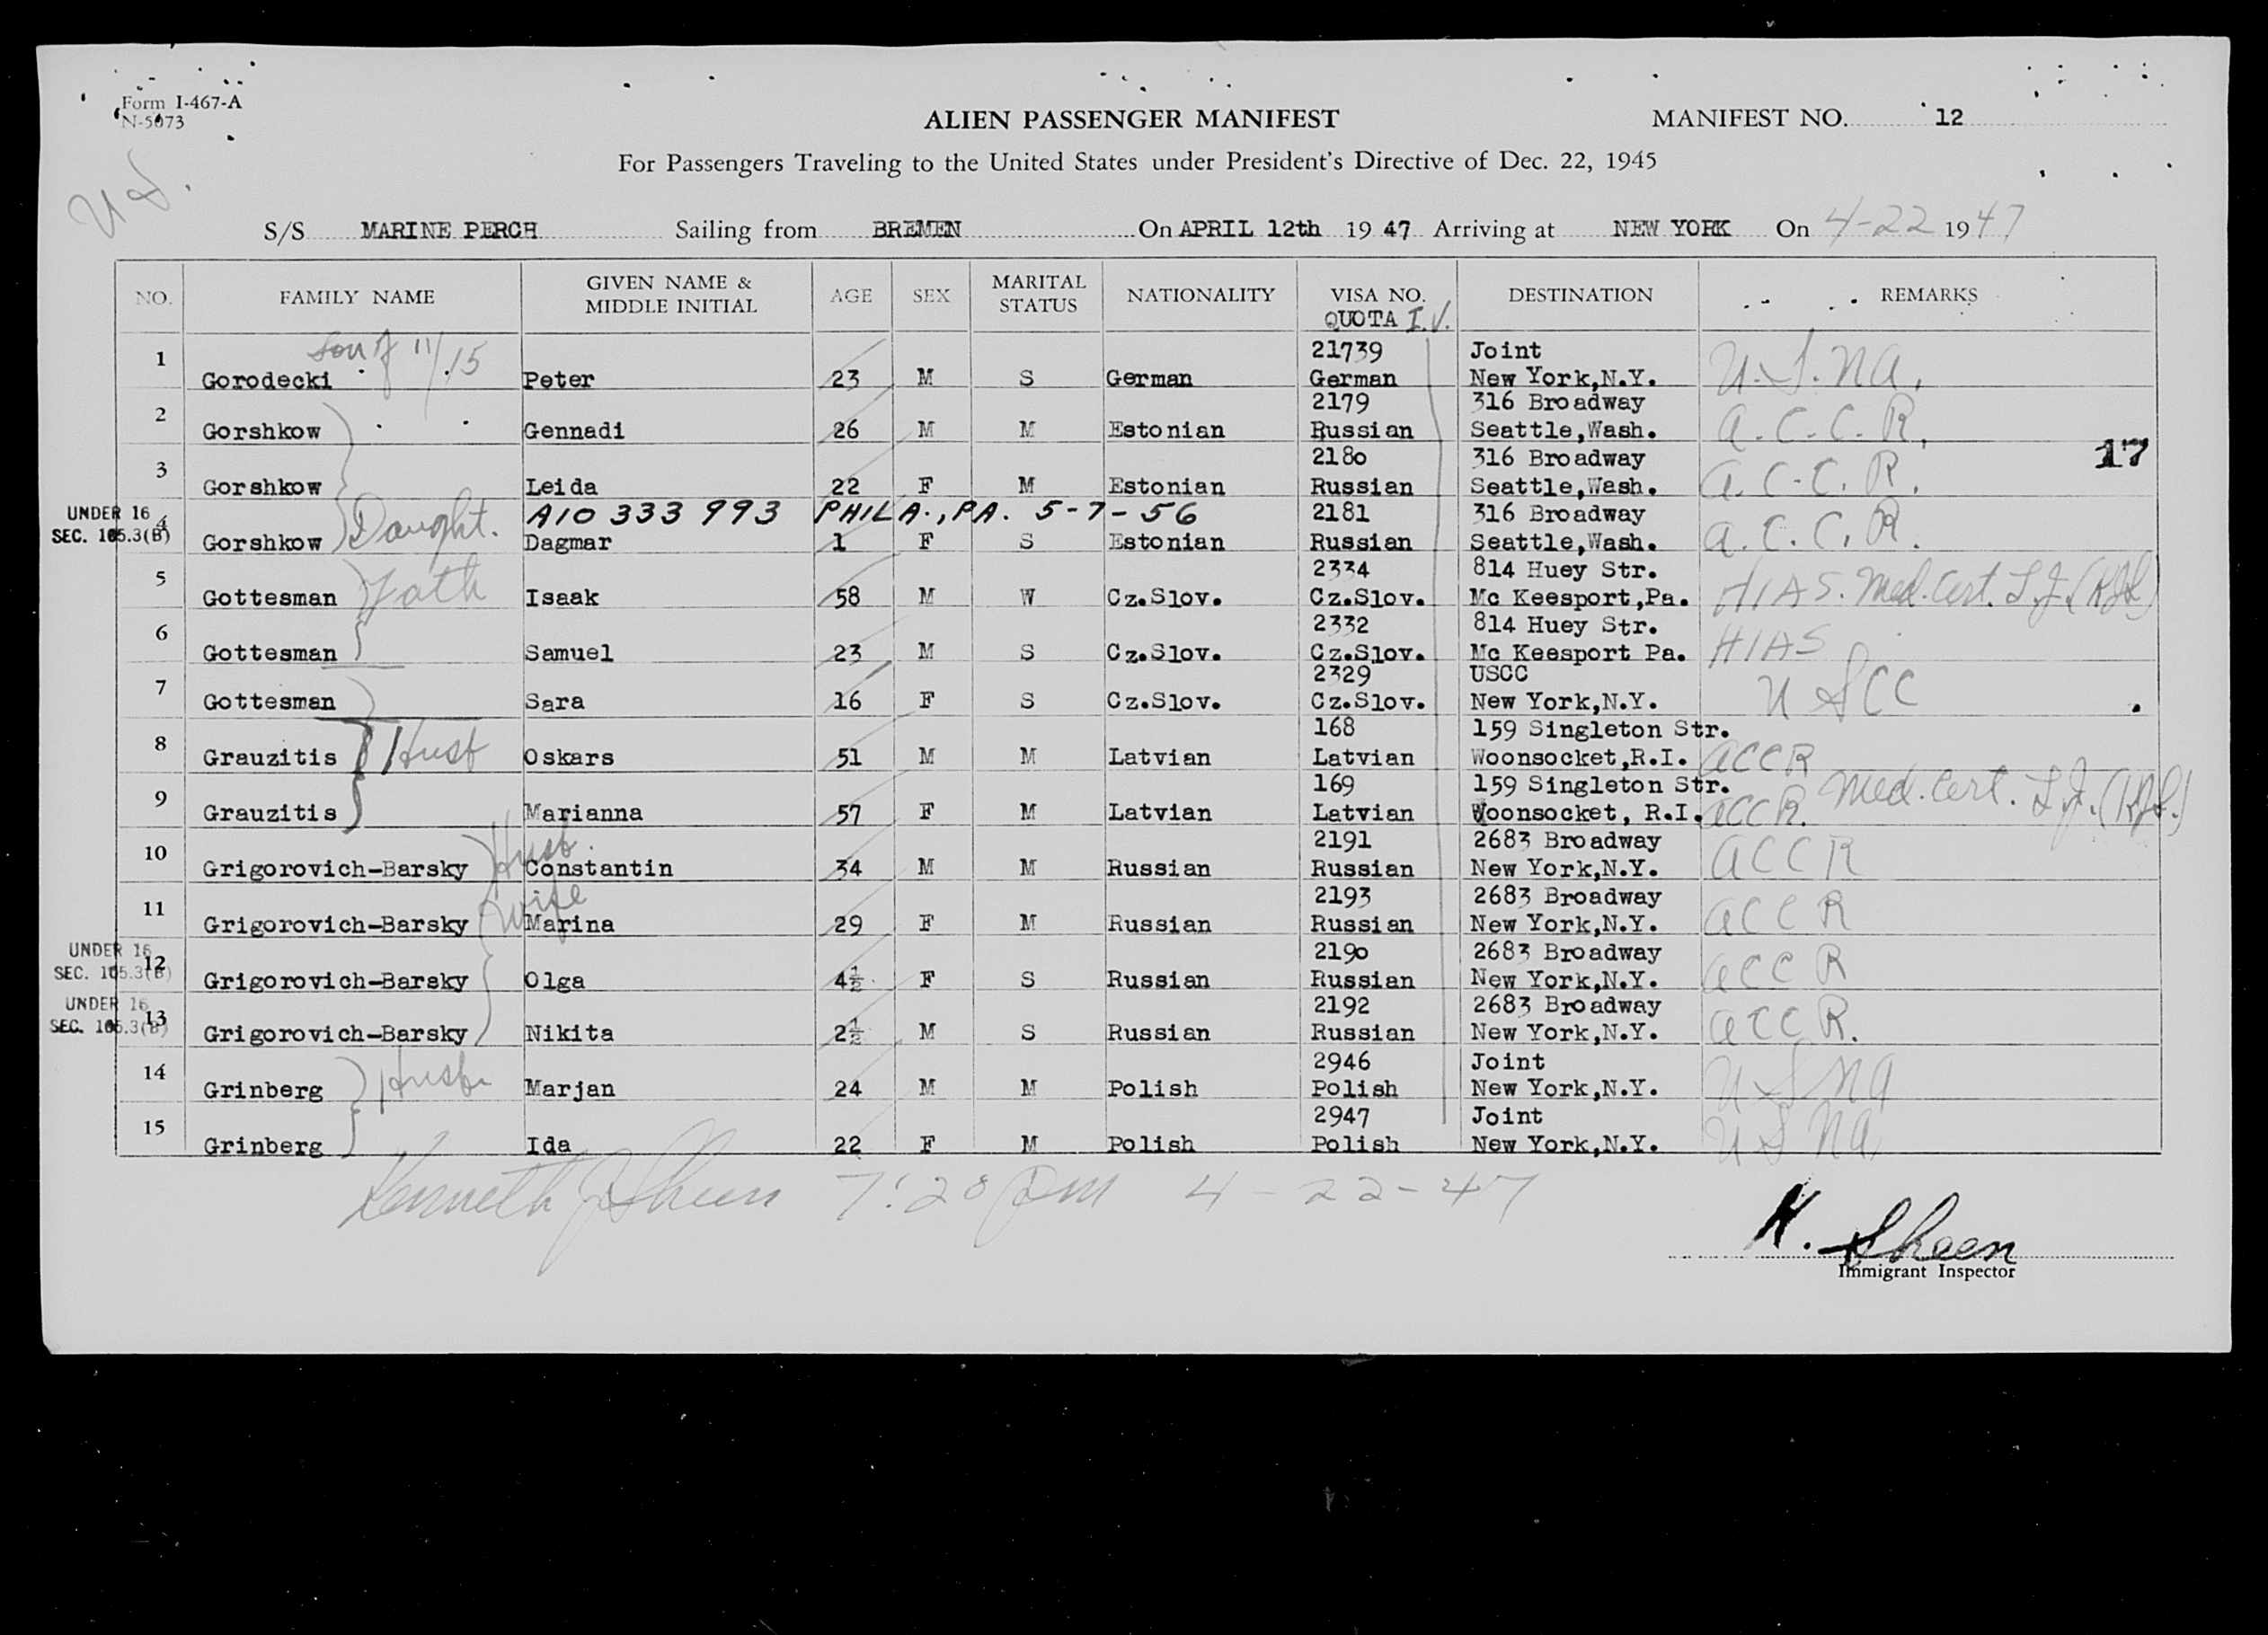 Form I-467-A
N-5073
ALIEN PASSENGER MANIFEST
MANIFEST NO. 12
For Passengers Traveling to the United States under President's Directive of Dec. 22, 1945
U.S.
S/S MARINE PERCH Sailing from BREMEN On APRIL 12th 19 47 Arriving at NEW YORK On 4-22 1947
NO. FAMILY NAME GIVEN NAME & MIDDLE INITIAL AGE SEX MARITAL STATUS NATIONALITY VISA NO. QUOTA I.V. DESTINATION REMARKS
son of 11/15 21739 Joint
1 Gorodecki Peter 23 M S German German New York,N.Y. U.S.NA.
2179 316 Broadway
2 Gorshkow Gennadi 26 M M Estonian Russian Seattle,Wash. A.C.C.R.
2180 316 Broadway 17
3 Gorshkow Leida 22 F M Estonian Russian Seattle,Wash. A.C.C.R.
UNDER 16 A10 333 993 PHILA., PA. 5-7-56 2181 316 Broadway
SEC. 105.3(B) 4 Gorshkow Daught. Dagmar 1 F S Estonian Russian Seattle,Wash. A.C.C.R.
2334 814 Huey Str.
5 Gottesman Fath Isaak 58 M W Cz.Slov. Cz.Slov. Mc Keesport,Pa. HIAS. Med. Cert.
2332 814 Huey Str.
6 Gottesman Samuel 23 M S Cz.Slov. Cz.Slov. Mc Keesport Pa. HIAS
2329 USCC
7 Gottesman Sara 16 F S Cz.Slov. Cz.Slov. New York,N.Y. USCC
168 159 Singleton Str.
8 Grauzitis Husb Oskars 51 M M Latvian Latvian Woonsocket,R.I. ACCR
169 159 Singleton Str.
9 Grauzitis Marianna 57 F M Latvian Latvian Woonsocket, R.I. ACCR. Med. Cert.
2191 2683 Broadway
10 Grigorovich-Barsky Husb. Constantin 34 M M Russian Russian New York,N.Y. ACCR
2193 2683 Broadway
11 Grigorovich-Barsky Wife Marina 29 F M Russian Russian New York,N.Y. ACCR
UNDER 16 2190 2683 Broadway
SEC. 105.3(B) 12 Grigorovich-Barsky Olga 4½ F S Russian Russian New York,N.Y. ACCR
UNDER 16 2192 2683 Broadway
SEC. 105.3(B) 13 Grigorovich-Barsky Nikita 2½ M S Russian Russian New York,N.Y. ACCR.
2946 Joint
14 Grinberg Husb Marjan 24 M M Polish Polish New York,N.Y. USNA
2947 Joint
15 Grinberg Ida 22 F M Polish Polish New York,N.Y. USNA
Kenneth J Sheen 7:20 pm 4-22-47
K. Sheen
Immigrant Inspector